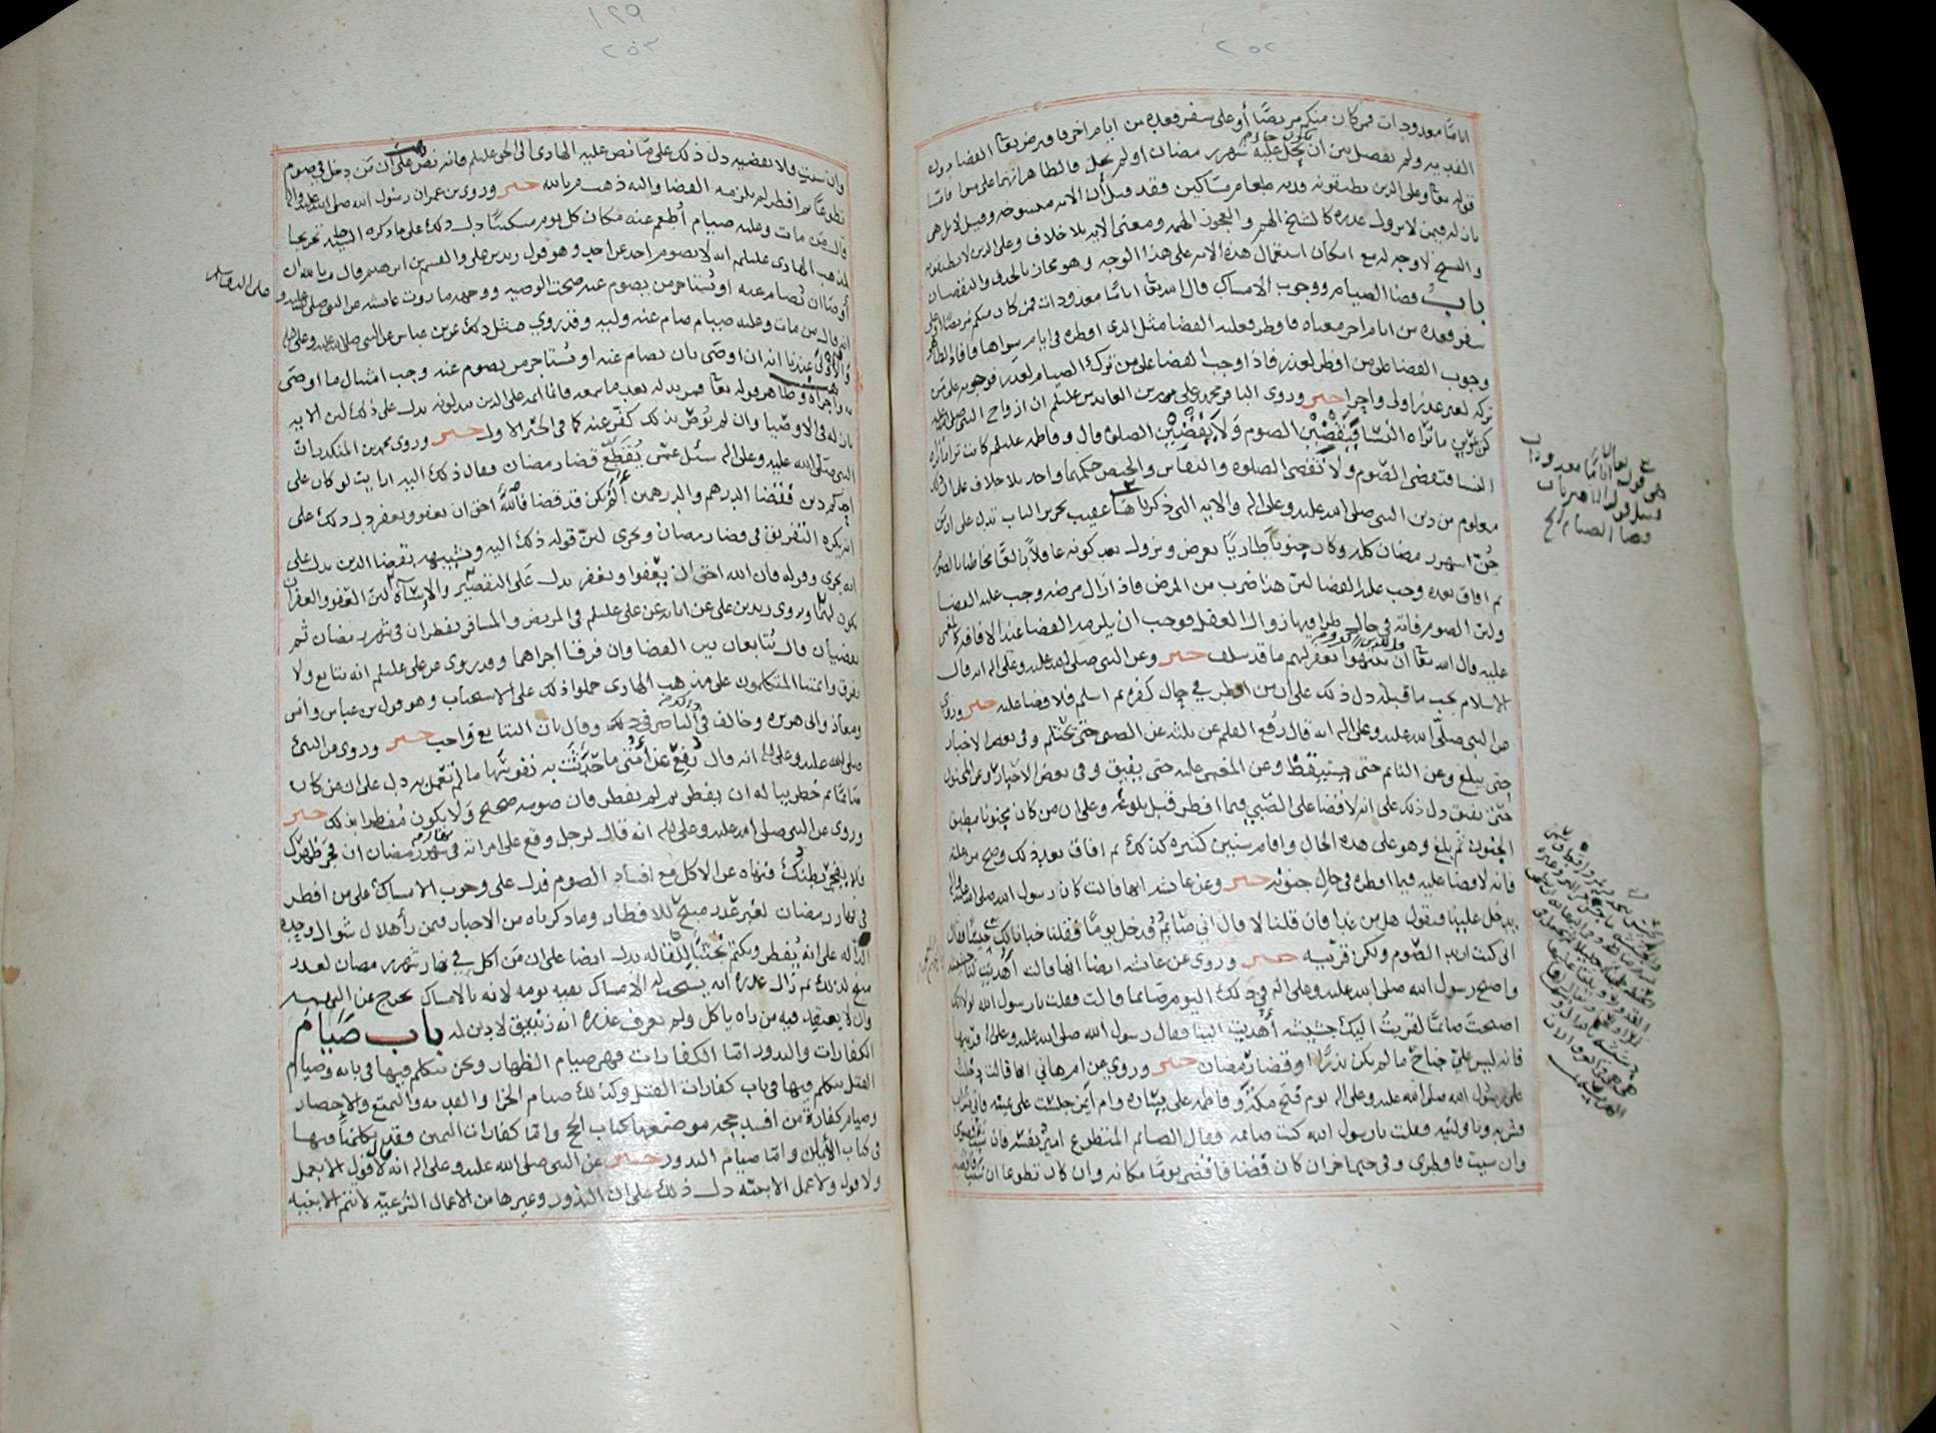 ٢٥٢
اياما معدودات فمن كان منكم مريضا أو على سفر فعده من ايام اخر فاوجب تعالى القضا دون
الفديه ولم يفصل بين ان يحل عليه شهر رمضان او لم يحل
قوله تعالى وعلى الذين يطيقونه فديه طعام مساكين فقد قيل ان الايه منسوخه وقيل لا بل هي
لمن لا يزول عذره كالشيخ الهم والعجوز الهمه ومعنى الايه بلا خلاف وعلى الذين لا يطيقونه
والنسخ لا وجه له مع امكان استعمال هذه الايه على هذا الوجه وهو مجاز بالحذف والنقصان
باب قضا الصيام ووجوب الامساك قال الله تعالى اياما معدودات فمن كان منكم مريضا او على
سفر فعده من ايام اخر معناه فافطر فعليه القضا مثل الذي افطره في ايام سواها
وجوب القضا على من افطر لعذر فاذا وجب القضا على من ترك الصيام لعذر فوجوبه على من
تركه لغير عذر اولى واحرا خبر وروى الباقر محمد بن علي بن زين العابدين عليلم ان ازواج النبي صلى الله عليه
كن يرين ما تراه النسا فيقضين الصوم ولا يقضين الصلوة قال وفاطمه عليلم كانت ترا ما تراه
النسا فتقضي الصوم ولا تقضي الصلوه والنفاس والحيض حكمهما واحد بلا خلاف
معلوم من دين النبي صلى الله عليه وعلى اله والايه التي ذكرناها عقيب تحرير الباب تدل على ان من
جن شهر رمضان كله وكان جنونا طاريا يعرض ويزول بعد كونه عاقلا بالغا مخاطبا بالصوم
ثم افاق بعده وجب عليه القضا لان هذا ضرب من المرض فاذا زال مرضه وجب عليه القضا
ولان الصوم فاته في حال طرا فيها زوال العقل فوجب ان يلزمه القضا عند الافاقه
قال الله تعالى ان ينتهوا يغفر لهم ما قد سلف خبر وعن النبي صلى الله عليه وعلى اله انه قال
الاسلام يجب ما قبله دل ذلك على ان من افطر في حال كفره ثم اسلم فلا قضا عليه خبر وروي
عن النبي صلى الله عليه وعلى اله انه قال رفع القلم عن ثلثه عن الصبي حتى يحتلم وفي بعض الاخبار
حتى يبلغ وعن النائم حتى يستيقظ وعن المغمى عليه حتى يفيق وفي بعض الاخبار وعن المجنون
حتى يفيق دل ذلك على انه لا قضا على الصبي فيما افطر قبل بلوغه وعلى ان من كان مجنونا مطبق
الجنون ثم بلغ وهو على هذه الحال واقام سنين كثيره كذلك ثم افاق بعد ذلك وصح من علته
فانه لا قضا عليه فيما افطره في حال جنونه خبر وعن عائشه انها قالت كان رسول الله صلى الله عليه
يدخل علينا فيقول هل من غدا فان قلنا لا قال اني صائم فدخل يوما فقلنا خبانا لك حيسا فقال
اني كنت اريد الصوم ولكن قربيه خبر وروى عن عائشه ايضا انها قالت أهديت لنا
واصبح رسول الله صلى الله عليه وعلى اله في ذلك اليوم صائما قالت فقلت يا رسول الله لولا انك
اصبحت صائما لقربت اليك جشيشه أهديت الينا فقال رسول الله صلى الله عليه وعلى اله قربيها
فانه ليس علي جناح ما لم يكن نذرا او قضا رمضان خبر وروي عن ام هاني انها قالت دخلت
على رسول الله صلى الله عليه وعلى اله يوم فتح مكه وفاطمه على يساره وام ايمن جلست على يمينه
فشربه وناولنيه فقلت يا رسول الله كنت صائمه فقال الصائم المتطوع امير نفسه فان شيت فصومي
وان شيت فافطري وفي خبر اخر ان كان قضا فاقضي يوما مكانه وان كان تطوعا ان شيت
هي قوله اياما معدودات
قضا الصيام الخ
١٢٩
٢٥٣
وان شيت فلا تقضيه دل ذلك على ما نص عليه الهادي الى الحق عليلم فانه نص على ان من دخل في صوم
تطوعا ثم افطر لم يلزمه القضا واليه ذهب م بالله خبر وروى بن عمر ان رسول الله صلى الله عليه واله
قال من مات وعليه صيام أطعم عنه مكان كل يوم مسكينا دل ذلك على ما ذكره السيد ط تخريجا
لمذهب الهادي عليلم انه لا يصوم احد عن احد وهو قول زيد بن علي والقسم بن ابرهيم وقال م بالله ان
أوصا ان يصام عنه او يستاجر من يصوم عنه صحت الوصيه ووجهه ما روت عائشه عن النبي صلى الله عليه و
على اله وسلم
انه قال من مات وعليه صيام صام عنه وليه وقد روي مثل ذلك عن بن عباس عن النبي صلى الله عليه وعلى اله
والاولى عندنا انه ان اوصى بان يصام عنه او يستاجر من يصوم عنه وجب امتثال ما اوصى
به واجزاه وظاهر قوله تعالى فمن بدله بعد ما سمعه فانما اثمه على الذين يبدلونه يدل على ذلك لان الايه
نازله في الاوصيا وان لم يوص بذلك كفر عنه كما في الخبر الاول خبر وروى محمد بن المنكدر ان
النبي صلى الله عليه وعلى اله سئل عمن يقطع قضا رمضان فقال ذلك اليه ارايت لو كان على
احدكم دين فقضا الدرهم والدرهمين ألم يكن قد قضا فالله احق ان يعفو ويغفر دل ذلك على
انه يكره التفريق في قضا رمضان ويجزي لان قوله ذلك اليه وتشبيهه بقضا الدين يدل على
انه يجزي وقوله فان الله احق ان يعفوا ويغفر يدل على التقصير والاساه لان العفو والغفران
يكون لهما وروى زيد بن علي عن ابائه عن علي عليلم في المريض والمسافر يفطران في شهر رمضان ثم
يقضيان قال يتابعان بين القضا وان فرقا اجزاهما وقد روى عن علي عليلم انه يتابع ولا
يفرق وائمتنا المتكلمون على مذهب الهادي حملوا ذلك على الاستحباب وهو قول بن عباس وانس
ومعاذ وابي هريره وخالف في ذلك الناصر وقال بان التتابع واجب خبر وروى عن النبي
صلى الله عليه وعلى اله انه قال رفع عن أمتي ما حدثت به نفوسها ما لم تعمل به دل على ان من كان
صائما ثم خطر بباله ان يفطر ثم لم يفطر فان صومه صحيح ولا يكون مفطرا بذلك خبر
وروى عن النبي صلى الله عليه وعلى اله انه قال لرجل وقع على امراته في شهر رمضان ان فجر ظهرك
فلا يفجر بطنك فنهاه عن الاكل مع افساد الصوم فدل على وجوب الامساك على من افطر
في نهار رمضان لغير عذر مبيح للافطار وما ذكرناه من الاخبار فيمن رأى هلال شوال وحده
الداله على انه يفطر ويكتم تجنبا للمقاله يدل ايضا على ان من اكل في نهار شهر رمضان لعذر
مبيح لذلك ثم زال عذره انه يستحب له الامساك بقيه يومه لانه بالامساك يخرج عن التهمه
وان لا يعتقد فيه من راه ياكل ولم يعرف عذره انه زنديق لا دين له باب صيام
الكفارات والنذور اما الكفارات فهي صيام الظهار ونحن نتكلم فيها في بابه وصيام
القتل نتكلم فيها في باب كفارات القتل وكذلك صيام الجزا والفديه والتمتع والاحصار
وصيام كفارة من افسد حجه موضعها كتاب الحج واما كفارات اليمين وقد تكلمنا فيها
في كتاب الأيمان واما صيام النذور خبر عن النبي صلى الله عليه وعلى اله انه قال لا قول الا بعمل
ولا قول ولا عمل الا بنيه دل ذلك على ان النذور وغيرها من الاعمال الشرعيه لا تتم الا بنيه